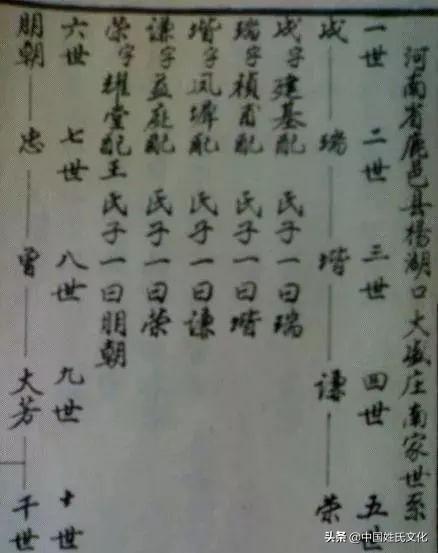 河南省鹿邑县杨湖口大盛庄南家世系
一世 二世 三世 四世 五世
成 瑞 堦 谦 荣
成字建基配 氏子一曰瑞
瑞字祯甫配 氏子一曰堦
堦字凤墀配 氏子一曰谦
谦字益庭配 氏子一曰荣
荣字耀堂配王氏子一曰朋朝
六世 七世 八世 九世 十世
朋朝 忠 曾 大芳 干世
头条 @中国姓氏文化